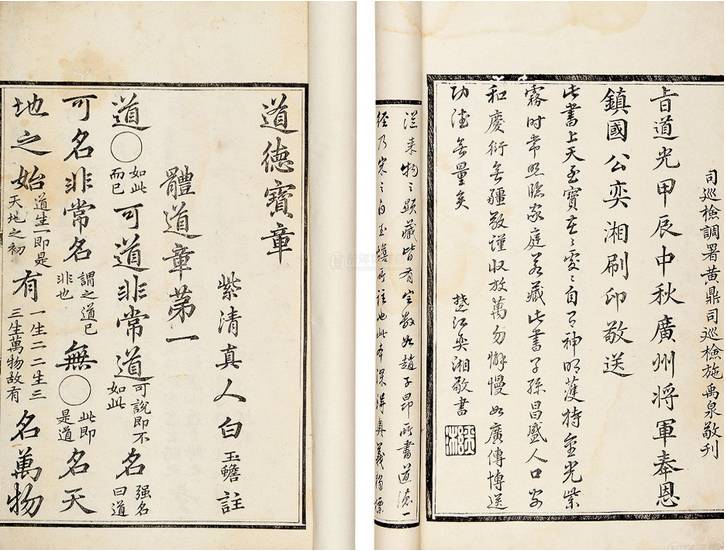 司巡檢調署黃鼎司巡檢施禹泉敬刊
旹道光甲辰中秋廣州將軍奉恩
鎮國公奕湘刷印敬送
此書上天至寶在在處處自有神明護持金光紫
霧時常照臨家庭若藏此書子孫昌盛人口安
和慶衍無疆敬謹收放萬勿懈慢如廣傳博送
功德無量矣
楚江奕湘敬書
從來物之顯藏皆有定數如趙子昂所書道德一
經乃宋之白玉蟾所註也此本深得奧義
道德寶章
紫清真人白玉蟾註
體道章第一
道○如此而已可道非常道可說即不如此名强名曰道
可名非常名謂之道已非也無○此即是道名天
地之始道生一即是天地之初有一生二二生三三生萬物故有名萬物